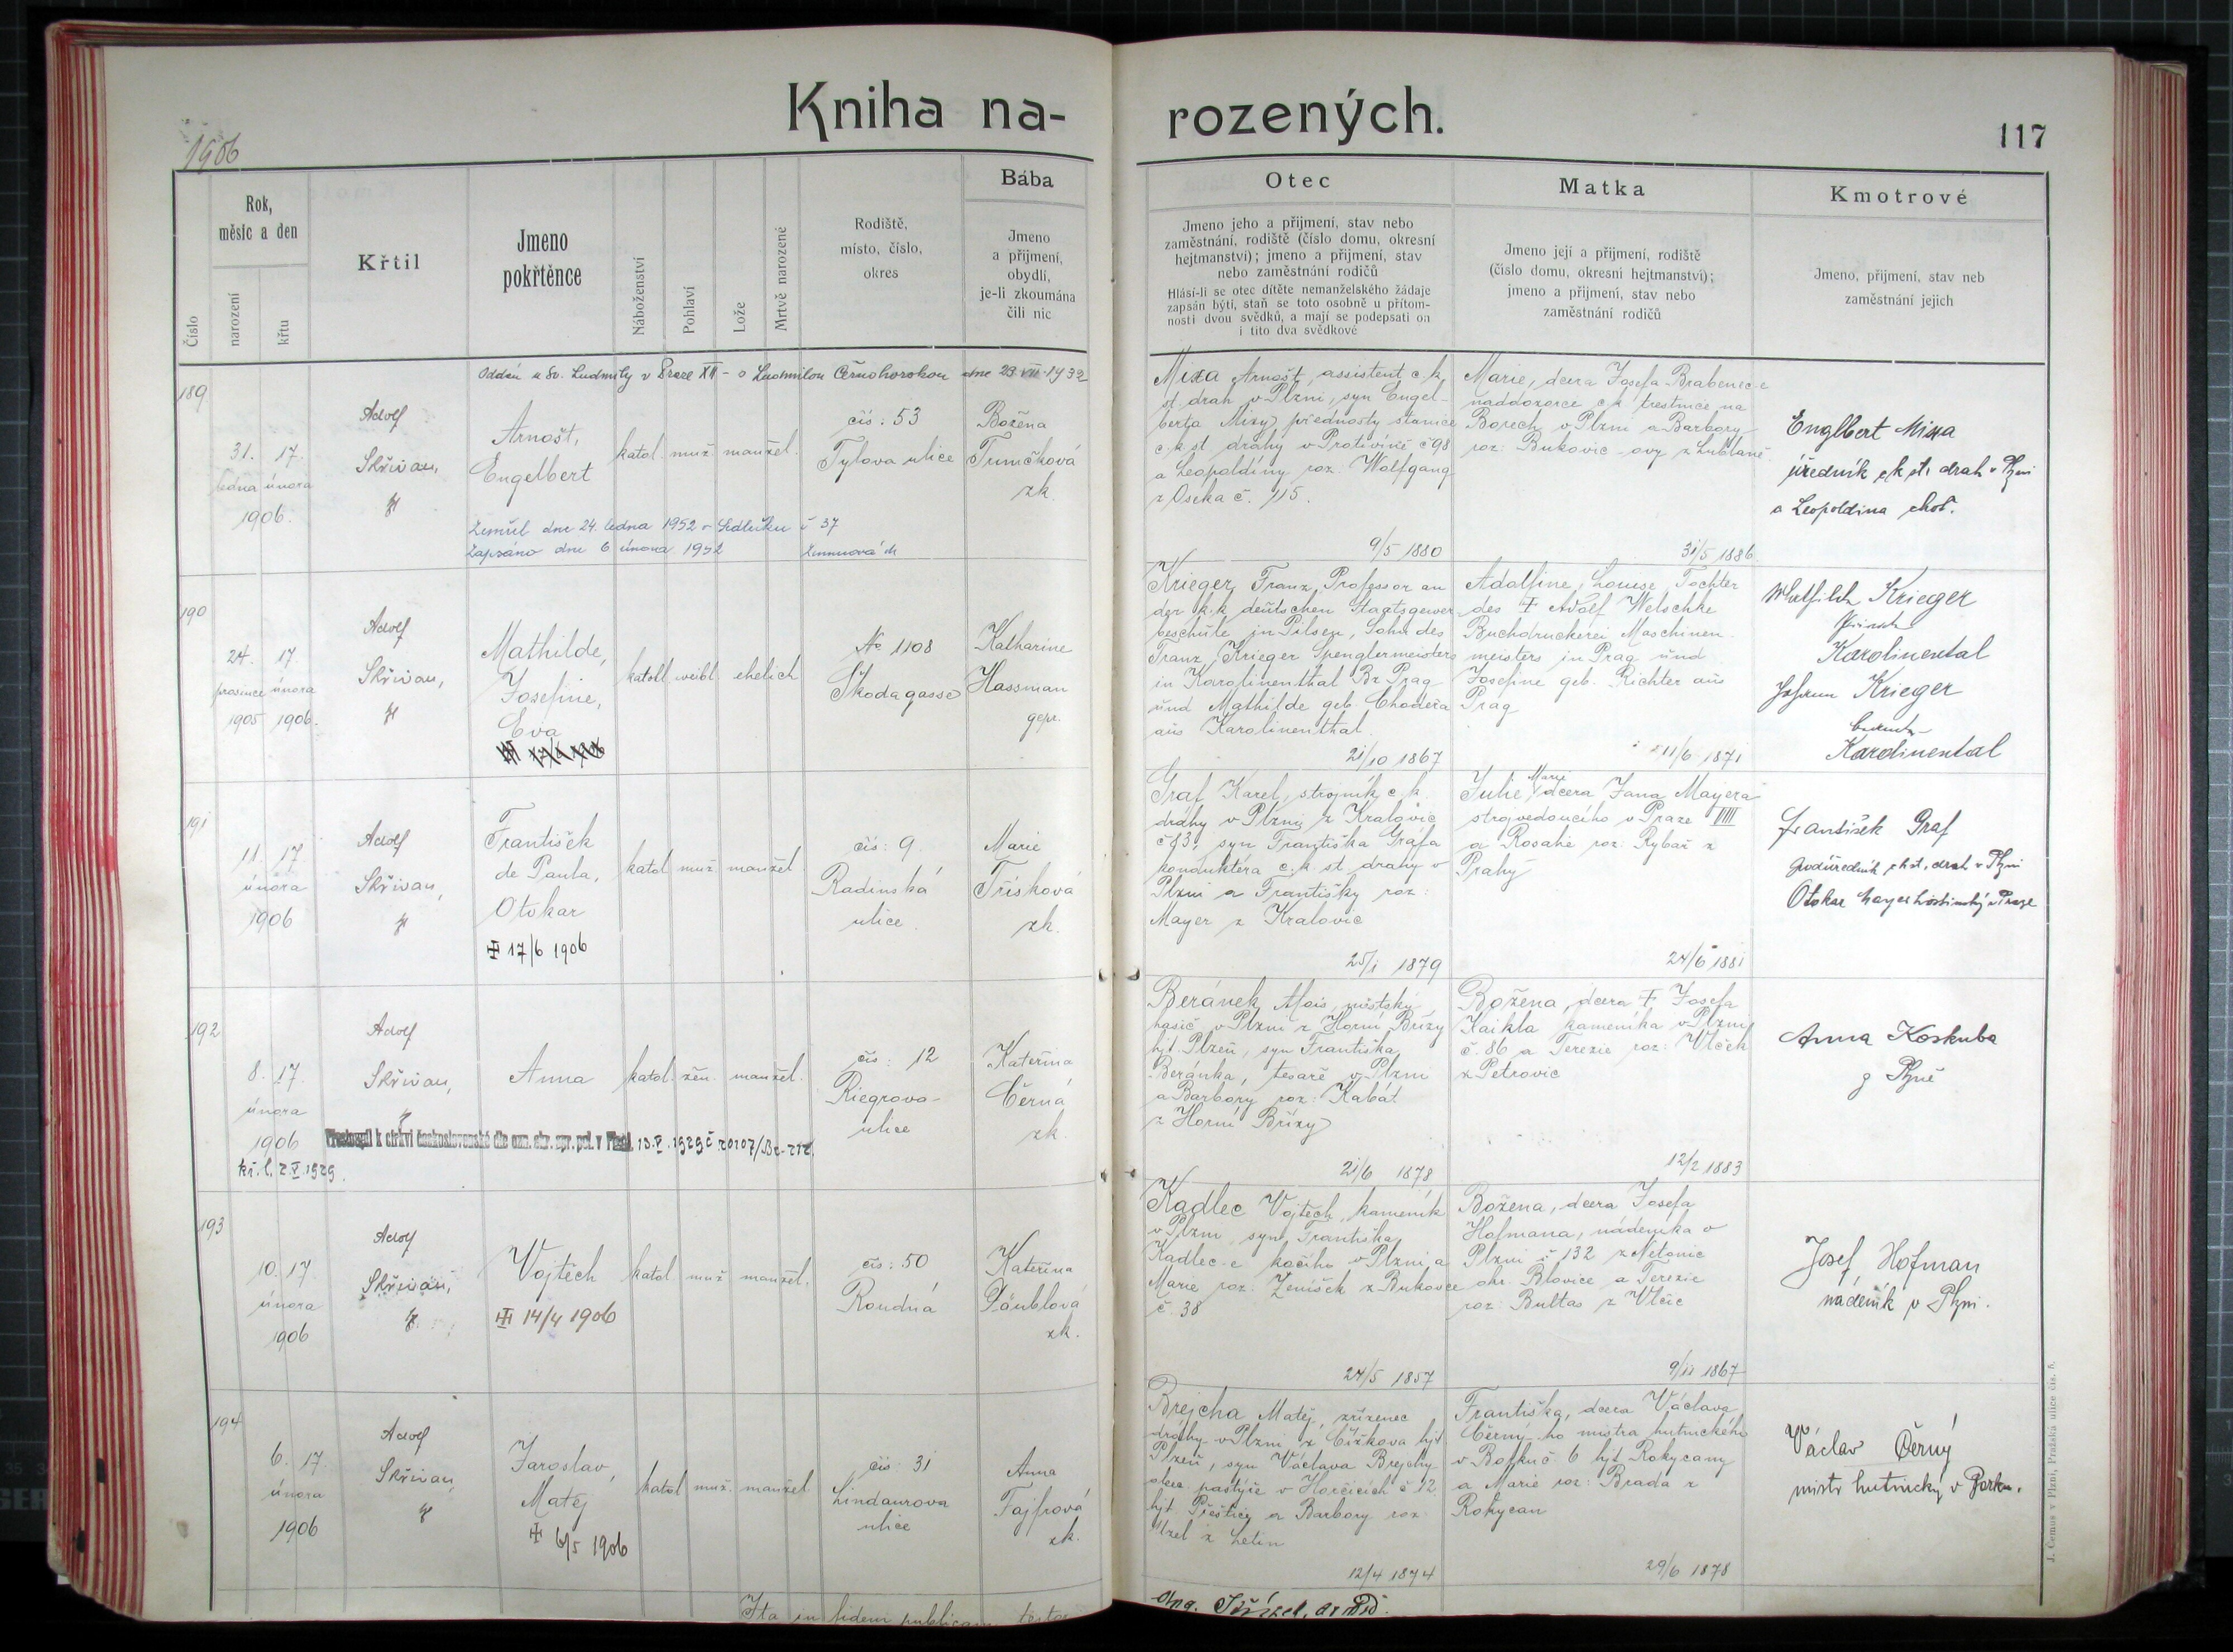 Kniha na-
rozených.
1906
117
Číslo
Rok,
měsíc a den
narození
křtu
Křtil
Jmeno
pokřtěnce
Náboženství
Pohlaví
Lože
Mrtvě narozené
Rodiště,
místo, číslo,
okres
Bába
Jmeno
a příjmení,
obydlí,
je-li zkoumána
čili nic
Otec
Jmeno jeho a příjmení, stav nebo
zaměstnání, rodiště (číslo domu, okresní
hejtmanství); jmeno a příjmení, stav
nebo zaměstnání rodičů
Hlásí-li se otec dítěte nemanželského žádaje
zapsán býti, staň se toto osobně u přítom-
nosti dvou svědků, a mají se podepsati on
i tito dva svědkové
Matka
Jmeno její a příjmení, rodiště
(číslo domu, okresní hejtmanství);
jmeno a příjmení, stav nebo
zaměstnání rodičů
Kmotrové
Jmeno, příjmení, stav neb
zaměstnání jejich
189
Oddán u Sv. Ludmily v Praze XII - s Ludmilou Černohorskou dne 23.VII.1932
31. 17.
ledna února
1906.
Adolf
Skřivan,
Arnošt,
Engelbert
katol. muž. manžel.
čís: 53
Tylova ulice
Božena
Tumčková
zk.
Zemřel dne 24. ledna 1952 v Sedlečku č 37
Zapsáno dne 6 února 1952
Mixa Arnošt, assistent c.k.
st. drah v Plzni, syn Engel-
berta Mixy přednosty stanice
c.k. st. dráhy v Protivíně č 98
a Leopoldiny roz. Wolfgang
z Oseka č. 115.
9/5 1880
Marie, dcera Josefa Brabenec-e
naddozorce c.k. trestnice na
Borech v Plzni a Barbory
roz: Bukovic-ovy z Lublaně.
31/5 1886
Englbert Mixa
úředník c k st. drah v Plzni
a Leopoldina choť.
190
24. 17.
prosince února
1905 1906.
Adolf
Skřivan,
Mathilde,
Josefine,
Eva
kathol. weibl. ehelich
No 1108
Škodagasse
Katharine
Hassman
gepr.
Krieger Franz, Professor an
der k.k. deutschen Staatsgewer-
beschule in Pilsen, Sohn des
Franz Krieger Spenglermeisters
in Karolinenthal Bz Prag
und Mathilde geb. Chodera
aus Karolinenthal.
21/10 1867
Adolfine, Louise, Tochter
des ✝ Adolf Welschke
Buchdruckerei Maschinen-
meisters in Prag und
Josefine geb. Richter aus
Prag
11/6 1871
Mathilde Krieger
Karolinental
Krieger
Karolinental
191
11. 17
února
1906
Adolf
Skřivan,
František
de Paula,
Otokar
✝ 17/6 1906
katol muž. manžel
čís: 9.
Radinská
ulice.
Marie
Třísková
zk.
Graf Karel, strojník c.k.
dráhy v Plzni z Kralovic
č 83, syn Františka Gráfa
konduktéra c.k. st. dráhy v
Plzni a Františky roz:
Mayer z Kralovic
25/1 1879
Julie Marie dcera Jana Mayera
strojvedoucího v Praze VIII
a Rosalie roz: Rybař z
Prahy
24/6 1881
František Graf
podúředník c k st. drah v Plzni
Otokar Mayer v Praze
192
8. 17.
února
1906
kř. l. 2.V.1929.
Adolf
Skřivan,
Anna
katol. žen. manžel.
Přestoupil k církvi československé dle ozn. okr. spr. pol. v Plzni. 13.V.1929 č 20107/
čís: 12
Riegrova-
ulice
Kateřina
Černá
zk.
Beránek Alois, městský
hasič v Plzni z Horní Břízy
hjt. Plzeň, syn Františka
Beránka, tesaře v Plzni
a Barbory roz: Kabát
z Horní Břízy
21/6 1878
Božena, dcera ✝ Josefa
Kaikla kameníka v Plzni
č. 86 a Terezie roz: Vlček
z Petrovic
12/2 1883
Anna Koskuba
z Plzně
193
10. 17.
února
1906
Adolf
Skřivan,
Vojtěch
✝ 14/4 1906
katol. muž manžel.
čís: 50
Roudná
Kateřina
Däublová
zk.
Kadlec Vojtěch, kameník
v Plzni syn Františka
Kadlec-e kočího v Plzni a
Marie roz. Ženíšek z Bukovce
č. 38
24/5 1857
Božena, dcera Josefa
Hofmana, nádeníka v
Plzni č 132 z Netonic
okr. Blovice a Terezie
roz: Bultas z Vlčic
9/11 1867
Josef Hofman
nádeník v Plzni.
194
6. 17.
února
1906
Adolf
Skřivan
Jaroslav,
Matěj
✝ 6/5 1906
katol muž. manžel
čís: 31
Lindaurova
ulice
Anna
Fajfrová
zk.
Brejcha Matěj, zřízenec
dráhy v Plzni z Čížkova hjt
Plzeň, syn Václava Brejchy
obec. pastýře v Horčicích č 12
hjt. Přeštice a Barbory roz:
Uzel z Letin
12/4 1874
Františka, dcera Václava
Černý-ho mistra hutnického
v Borku č 6 hjt Rokycany
a Marie roz: Brada z
Rokycan
29/6 1878
Václav Černý
mistr hutnický v Borku.
Ita in fidem publicam
J. Čemus v Plzni, Pražská ulice čís. 5.